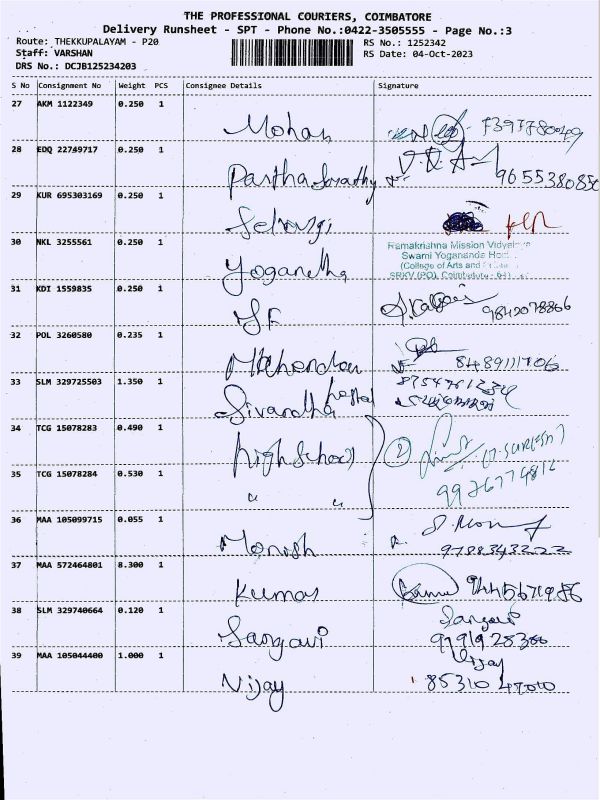 THE PROFESSIONAL COURIERS, COIMBATORE
Delivery Runsheet - SPT - Phone No.:0422-3505555 - Page No.:3
Route: THEKKUPALAYAM - P20 RS No.: 1252342
Staff: VARSHAN RS Date: 04-Oct-2023
DRS No.: DCJB125234203
S No Consignment No Weight PCS Consignee Details Signature
27 AKM 1122349 0.250 1
Mohan
28 EDQ 22749717 0.250 1
Partha Sarathy 9655380850
29 KUR 695303169 0.250 1
Selvargi
30 NKL 3255561 0.250 1 Ramakrishna Mission
Yoganetha Swami Yogananda
(College of Arts and
31 KDI 1559835 0.250 1
S.F 9842078866
32 POL 3260580 0.235 1
Mahendran 8489111706
33 SLM 329725503 1.350 1
Sivandha hostel
34 TCG 15078283 0.490 1
High School 2 (T. SURESH)
35 TCG 15078284 0.530 1 9976774812
" "
36 MAA 105099715 0.055 1
Monish 9788343222
37 MAA 572464801 8.300 1
Kumar 9445671986
38 SLM 329740664 0.120 1 Sangavi
Sangavi 9791928300
39 MAA 105044400 1.000 1 Vijay
Vijay 8531047000